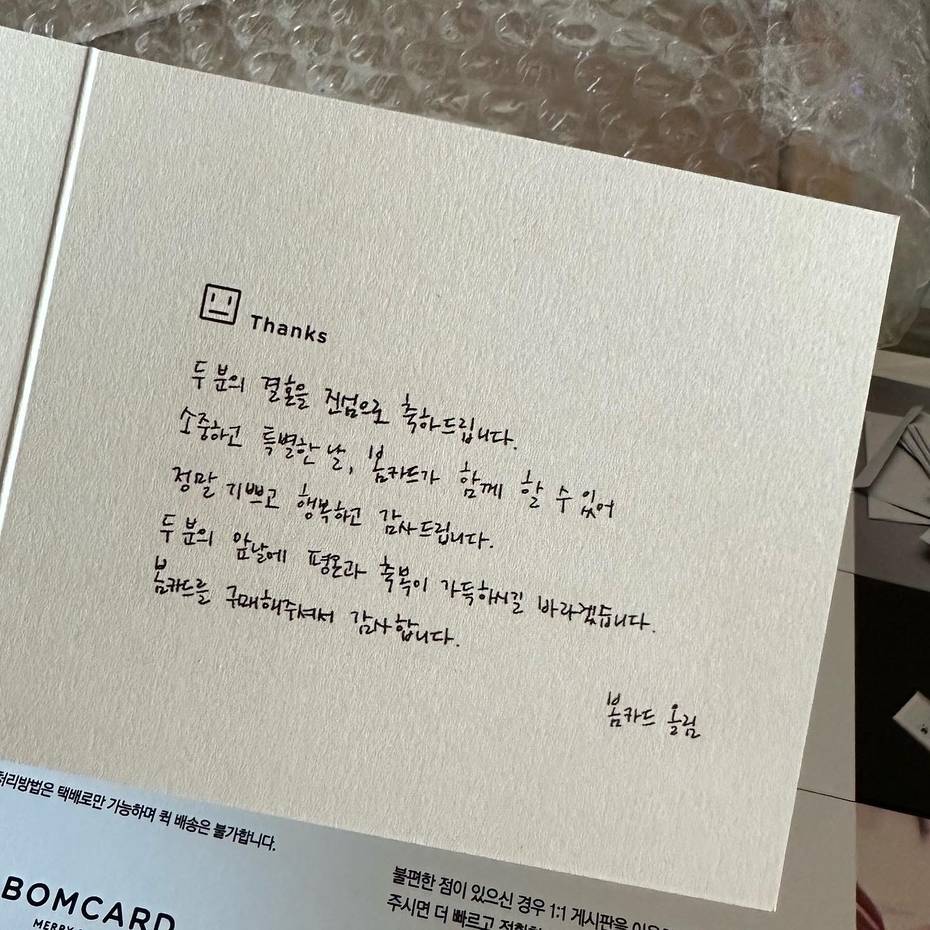 Thanks
두 분의 결혼을 진심으로 축하드립니다.
소중하고 특별한 날, 봄카드가 함께 할 수 있어
정말 기쁘고 행복하고 감사드립니다.
두 분의 앞날에 평온과 축복이 가득하시길 바라겠습니다.
봄카드를 구매해주셔서 감사합니다.
봄카드 올림
처리방법은 택배로만 가능하며 퀵 배송은 불가합니다.
불편한 점이 있으신 경우 1:1 게시판을
주시면 더 빠르고
BOMCARD
MERRY